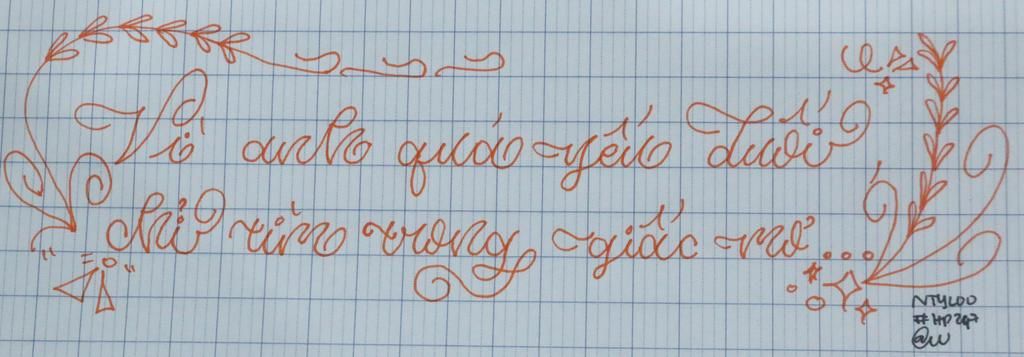 Vì anh quá yếu đuối,
chỉ tìm trong giấc mơ...
NTYLOO